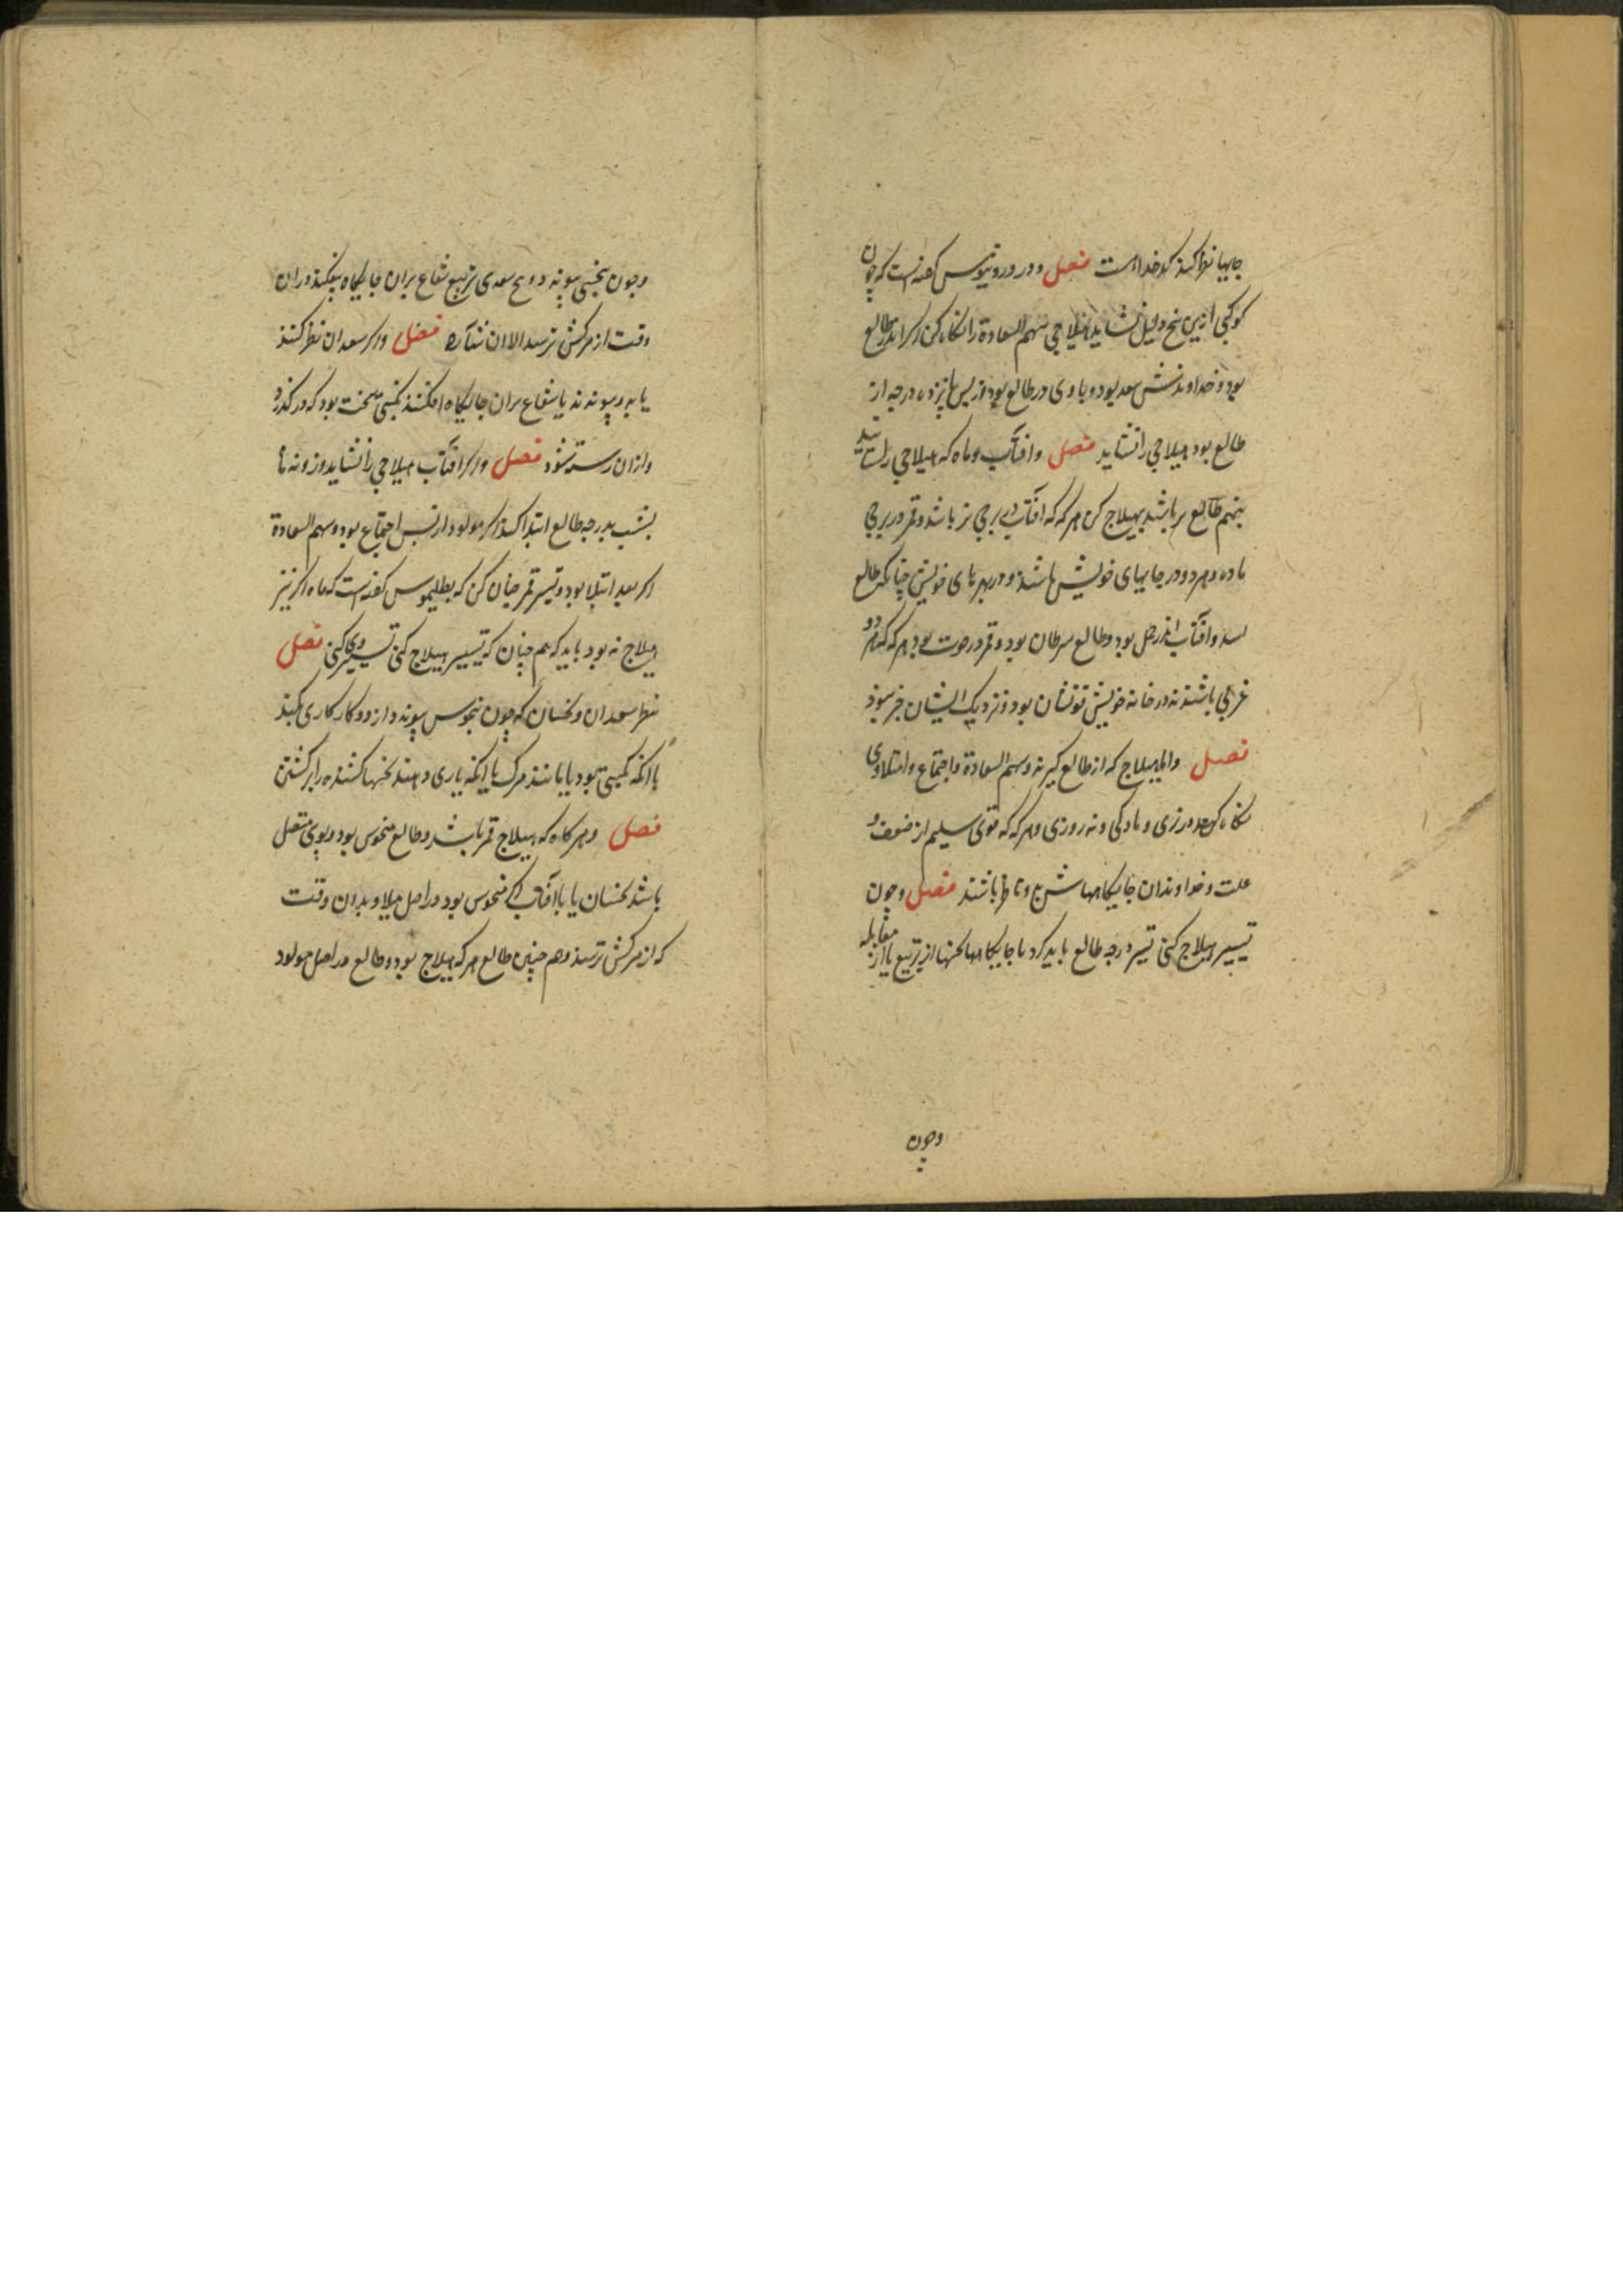 جایها نظر کند کدخداست فصل و در ورونیوس گفته است که چون
کوکبی ازین پنج دلیل نشاید هیلاجی سهم السعادة را نگاه کن اگر اندر طالع
بود و خداوندش سعد بود و با وی در طالع بود از پس پانزده درجه از
طالع بود هیلاجی را نشاید فصل و افتاب و ماه که هیلاجی را شاید
بنهم طالع بر باشد بهیلاج کن هر که که افتاب در برجی نر باشد و قمر در برجی
ماده و هر دو در جایهای خویش باشند و در بهرهای خویش چنانکه طالع
اسد و افتاب اندر حمل بود و طالع سرطان بود و قمر در حوت بود هر که که هر دو
غربی باشند نه در خانه خویش قوتشان بود و نزدیک ایشان جز سود
فصل واما هیلاج که از طالع گیرند و سهم السعادة و اجتماع و امتلا وی
نگاه کن نه در نری و مادگی و نه روزی و هر که که قوی سلیم از ضعف و
علت و خداوندان جایگاهها شرع و ناظر باشند فصل و چون
تسییر هیلاج کنی تسییر درجه طالع باید کرد با جایگاهها نحسها از تربیع یا از مقابله
وچون
وچون بنحسی پیوندد و هیچ سعدی تربیع شعاع بران جایگاه نیفکند دران
وقت از مرکش نرسد الا ان ستاره فصل و اگر سعدان نظر کنند
یا بدو پیوندند یا شعاع بران جایگاه افکنند نکبتی سخت بود که در گذرد
و ازان رسته شود فصل و اگر افتاب هیلاجی را نشاید و زونه ما
بشب بدرجه طالع ابتدا کند اگر مولود از پس اجتماع بود و سهم السعادة
اگر بعد امتلا بود و تسییر قمر چنان کن که بطلیموس گفته است که ماه اگر نیز
هیلاج نه بود باید که هم چنان که تسییر هیلاج کنی تسییر وی کنی فصل
نظر سعدان و نحسان که چون بنحوس پیوندد از دو کار کاری کند
یا انکه نکبتی بود یا مانند مرگ یا انکه یاری دهند نحسها کشنده را بر کشتن
فصل و هر گاه که هیلاج قمر باشد و طالع منحوس بود و بوی متصل
باشد نحسان یا با افتاب که منحوس بود در اصل میلاد بدان وقت
که از مرکش ترسند و هم چنین طالع هر که هیلاج بود و طالع در اصل مولود